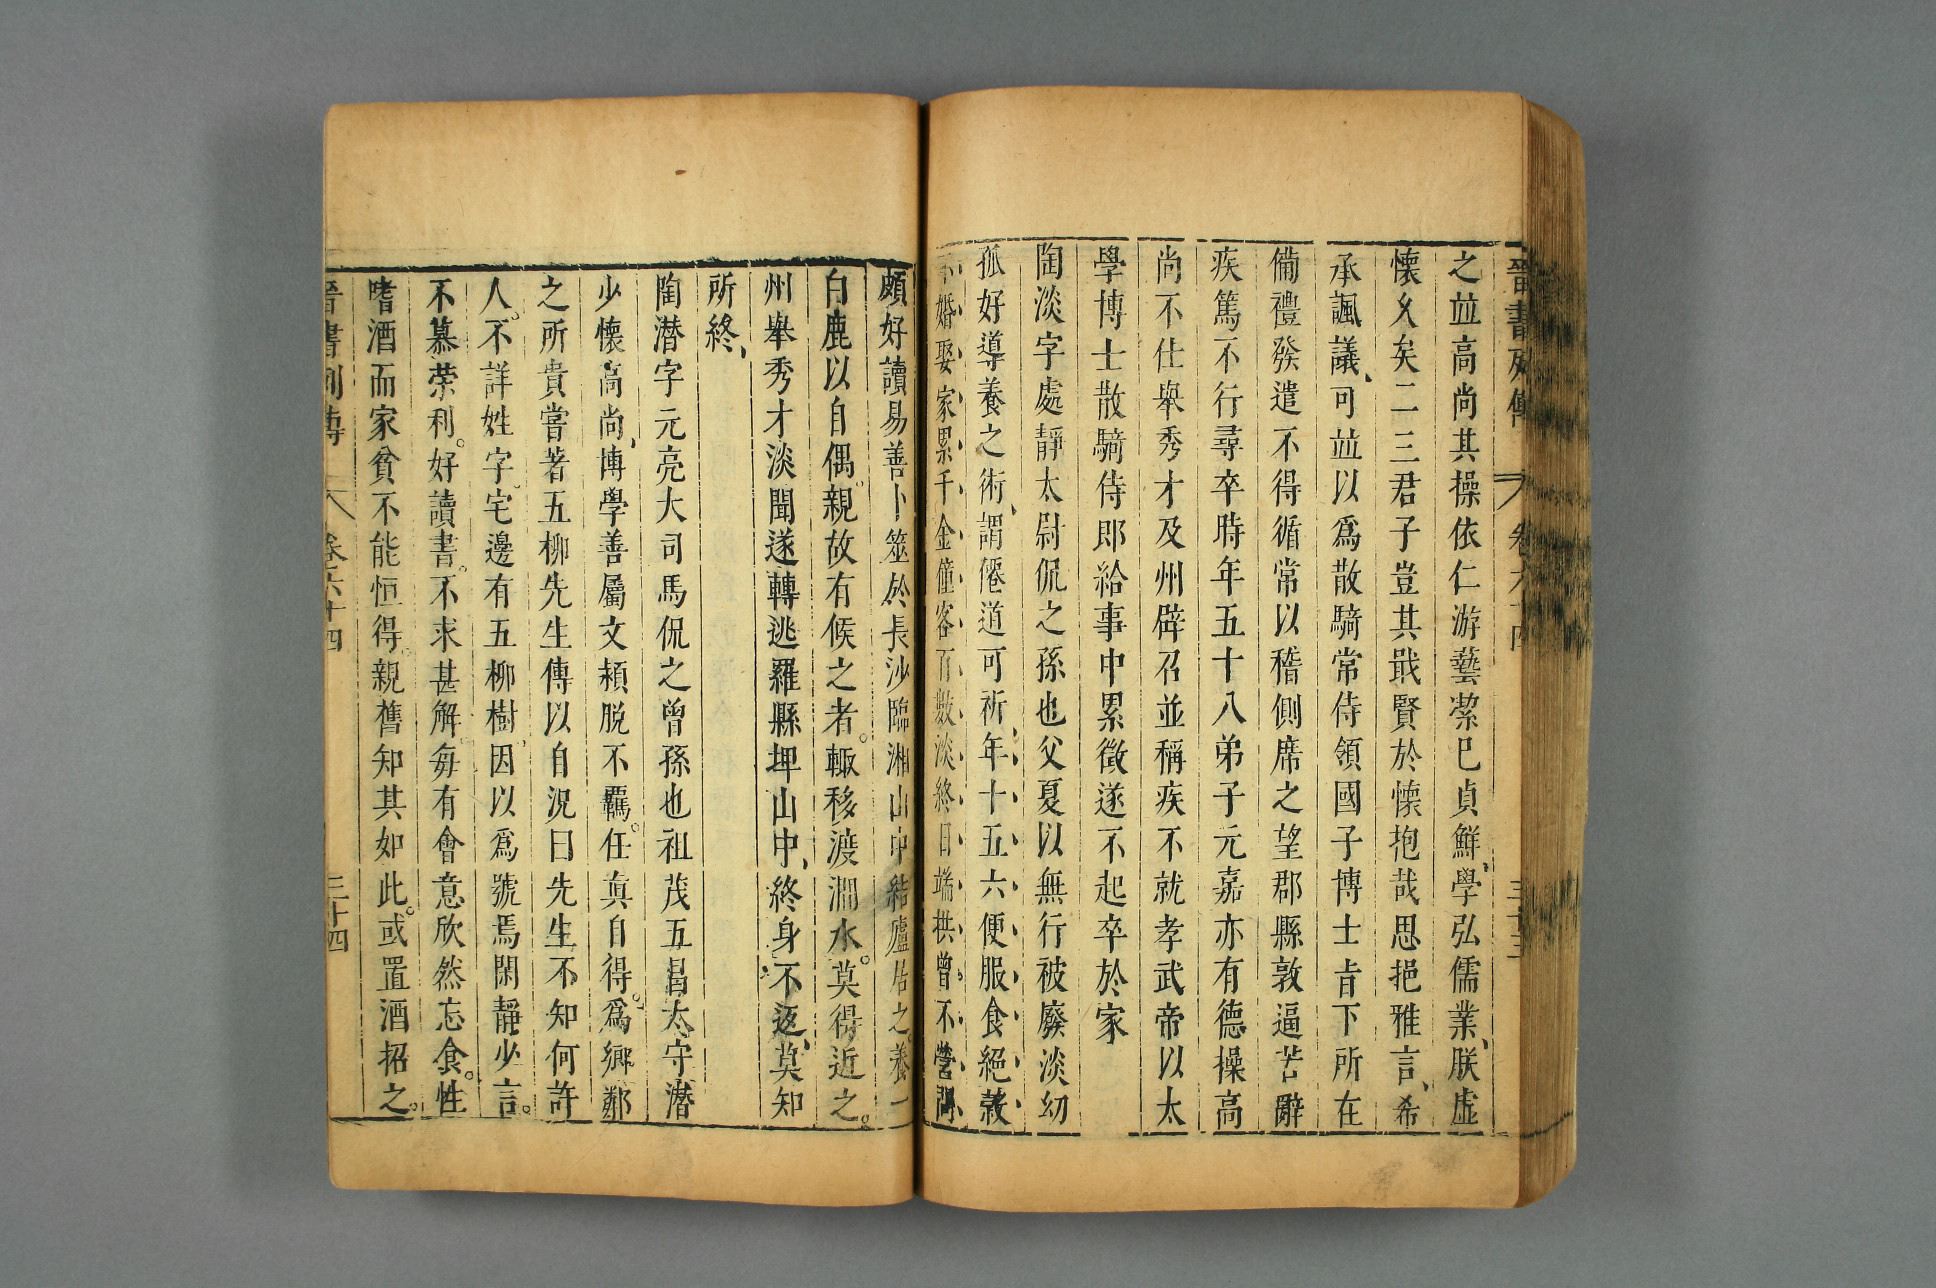 晉書列傳 卷六十四
之並高尚其操依仁游藝潔己貞鮮學弘儒業朕虛
懷久矣二三君子豈其戢賢於懷抱哉思挹雅言希
承諷議可並以爲散騎常侍領國子博士㫖下所在
備禮發遣不得循常以稽側席之望郡縣敦逼苦辭
疾篤不行尋卒時年五十八弟子元嘉亦有德操高
尚不仕舉秀才及州辟召並稱疾不就孝武帝以太
學博士散騎侍郎給事中累徵遂不起卒於家
陶淡字處靜太尉侃之孫也父夏以無行被廢淡幼
孤好導養之術謂僊道可祈年十五六便服食絕穀
不婚娶家累千金僮客百數淡終日端拱曾不營問
頗好讀易善卜筮於長沙臨湘山中結廬居之養一
白鹿以自偶。親故有候之者。輙移渡澗水。莫得近之。
州舉秀才淡聞遂轉逃羅縣埤山中、終身不返、莫知
所終、
陶潜字元亮大司馬侃之曾孫也祖茂武昌太守潜
少懷高尚、博學善屬文穎脱不羈。任眞自得。爲鄉鄰
之所貴嘗著五柳先生傳以自況曰先生不知何許
人。不詳姓字。宅邊有五柳樹因以爲號焉閑靜少言。
不慕榮利。好讀書。不求甚解。每有會意欣然忘食。性
嗜酒而家貧不能恒得。親舊知其如此。或置酒招之。
晉書列傳 卷六十四 三十四